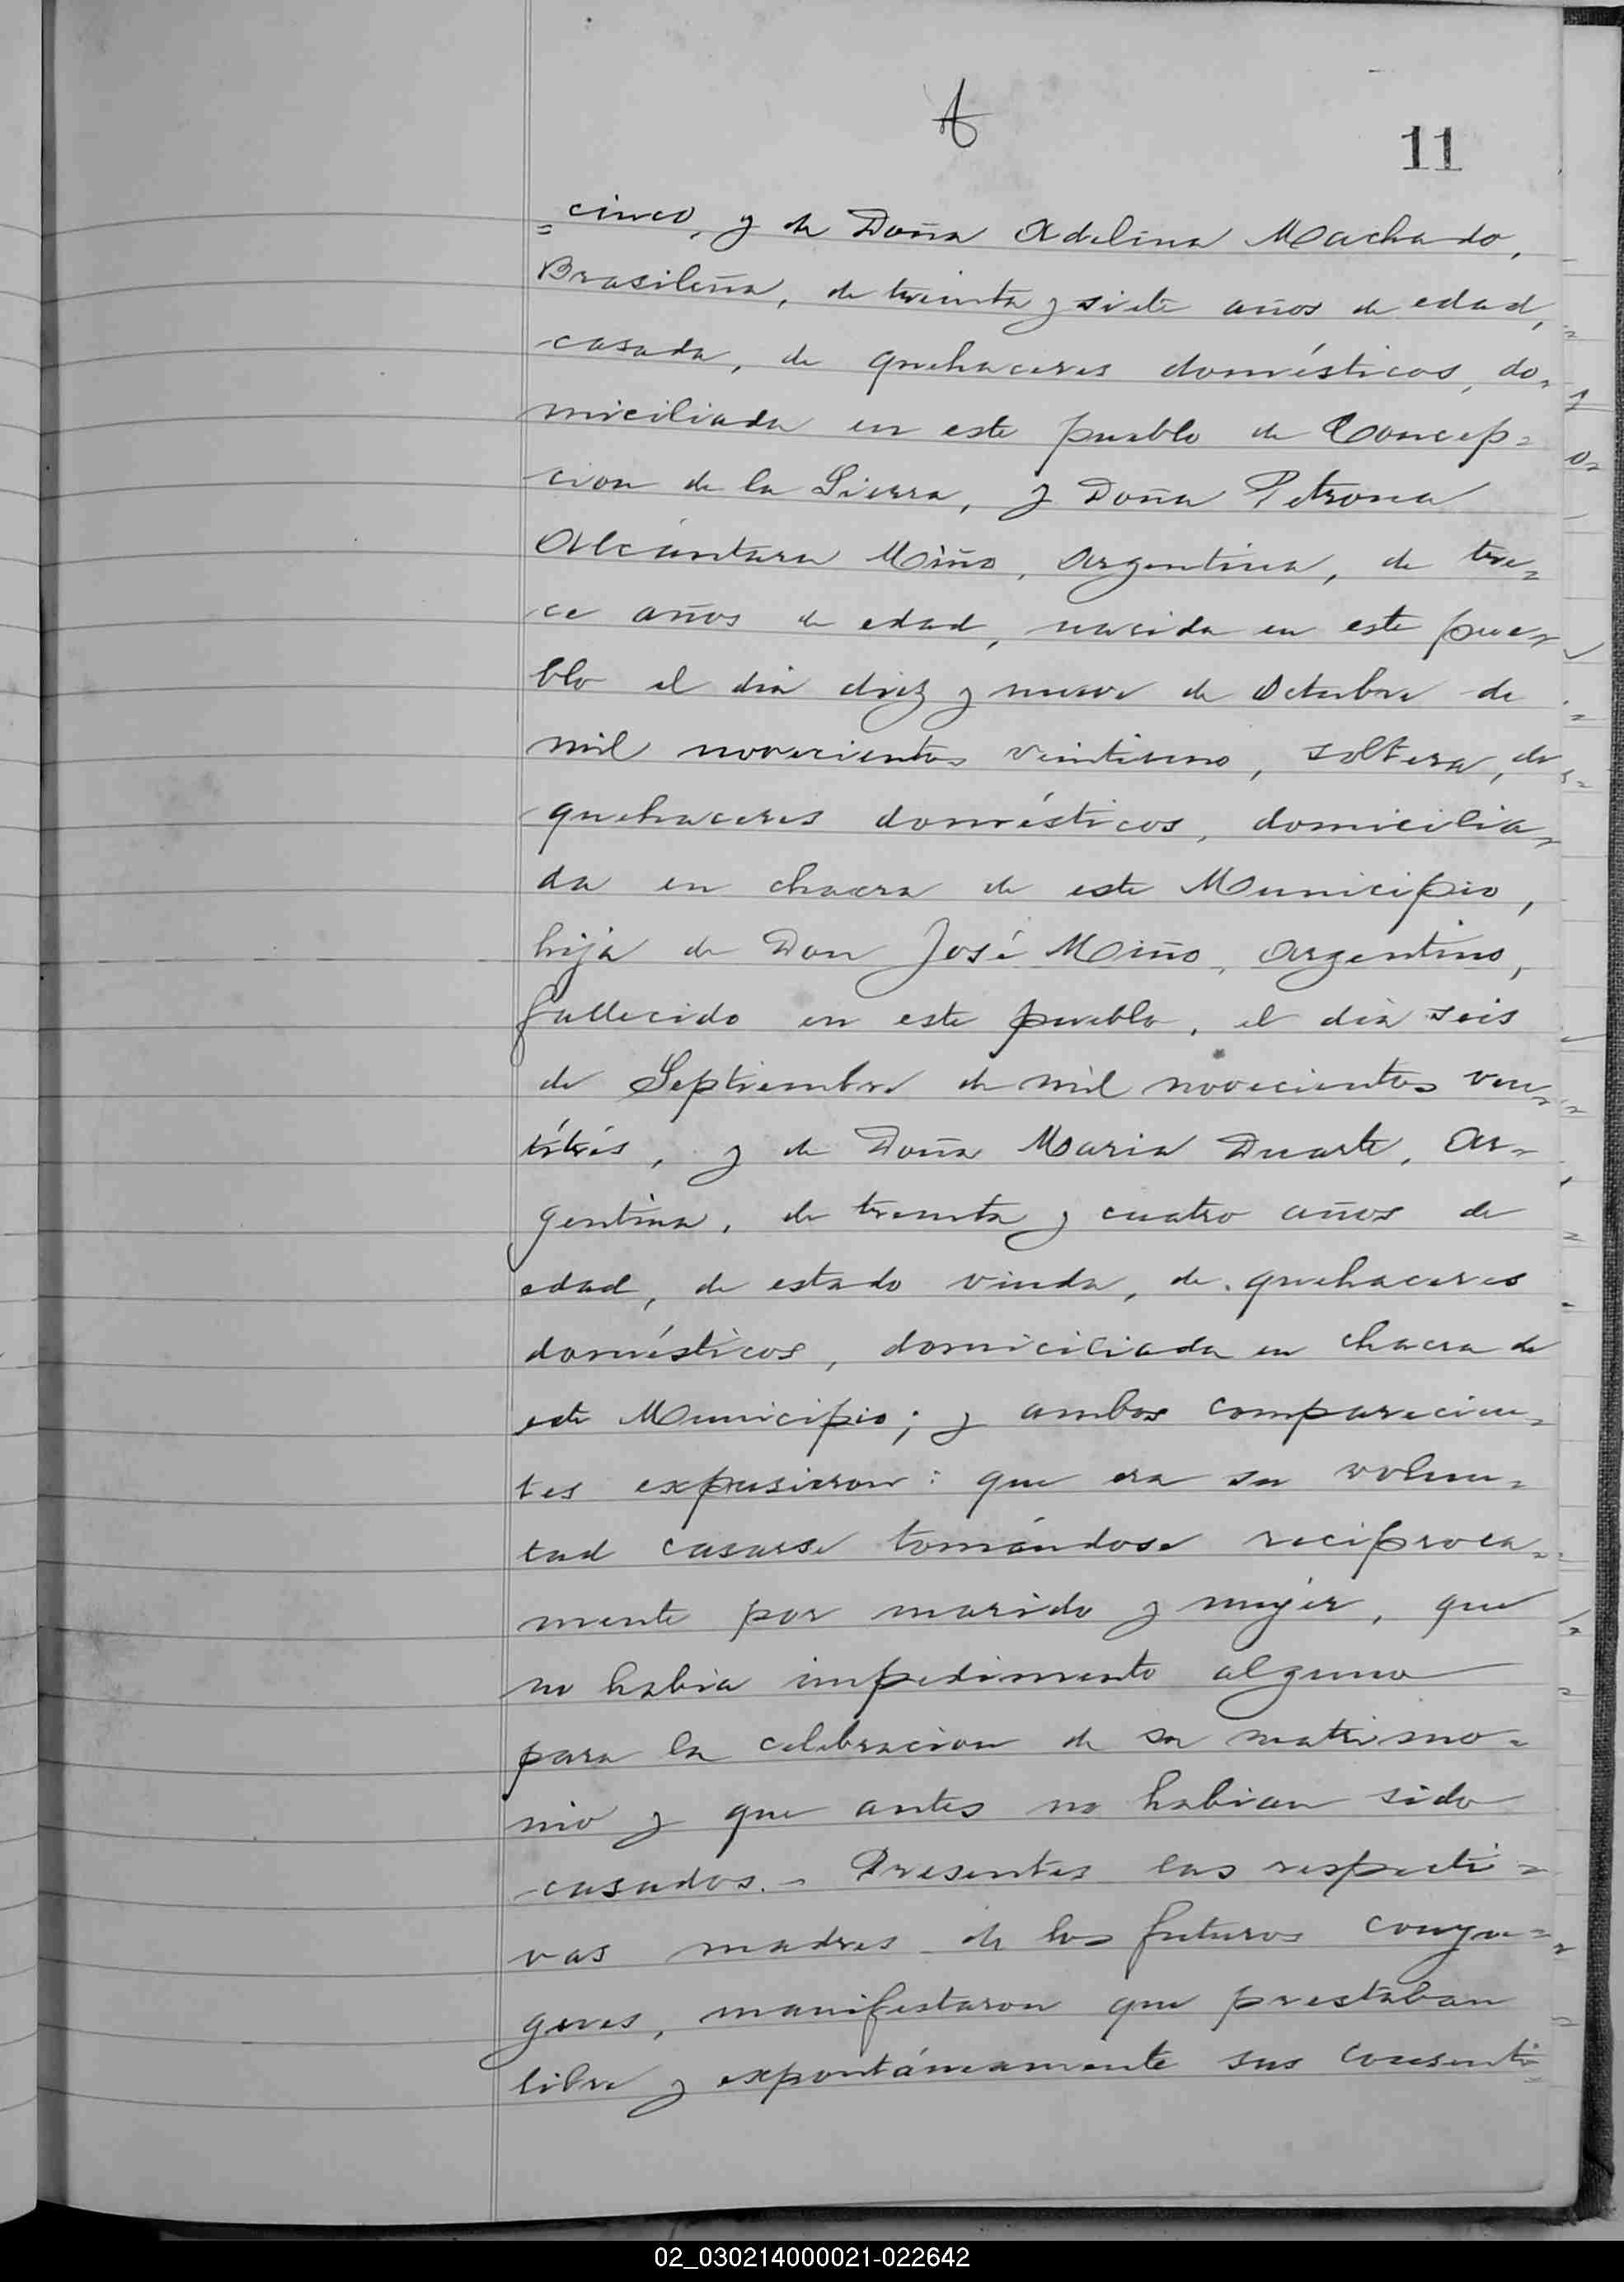 A
11
=cinco, y de Doña Adelina Machado,
Brasileña, de treinta y siete años de edad,
casada, de quehaceres domésticos, do-
miciliada en este pueblo de Concep=
cion de la Sierra, y Doña Petrona
Alcántara Miño, Argentina, de tre=
ce años de edad, nacida en este pue-
blo el dia diez y nueve de Octubre de
mil novecientos veintiuno, soltera, de
quehaceres domésticos, domicilia=
da en chacra de este Municipio,
hija de Don José Miño, Argentino,
fallecido en este pueblo, el dia seis
de Septiembre de mil novecientos vein=
titrés, y de Doña Maria Duarte, Ar-
gentina, de treinta y cuatro años de
edad, de estado viuda, de quehaceres
domésticos, domiciliada en chacra de
este Municipio; y ambos comparecien=
tes expusieron: que era su volun=
tad casarse tomándose reciproca=
mente por marido y mujer, que
no habia impedimento alguno
para la celebracion de su matrimo=
nio y que antes no habian sido
casados.- Presentes las respecti=
vas madres de los futuros conyu=
gues, manifestaron que prestaban
libre y expontáneamente sus consenti=
02_030214000021-022642